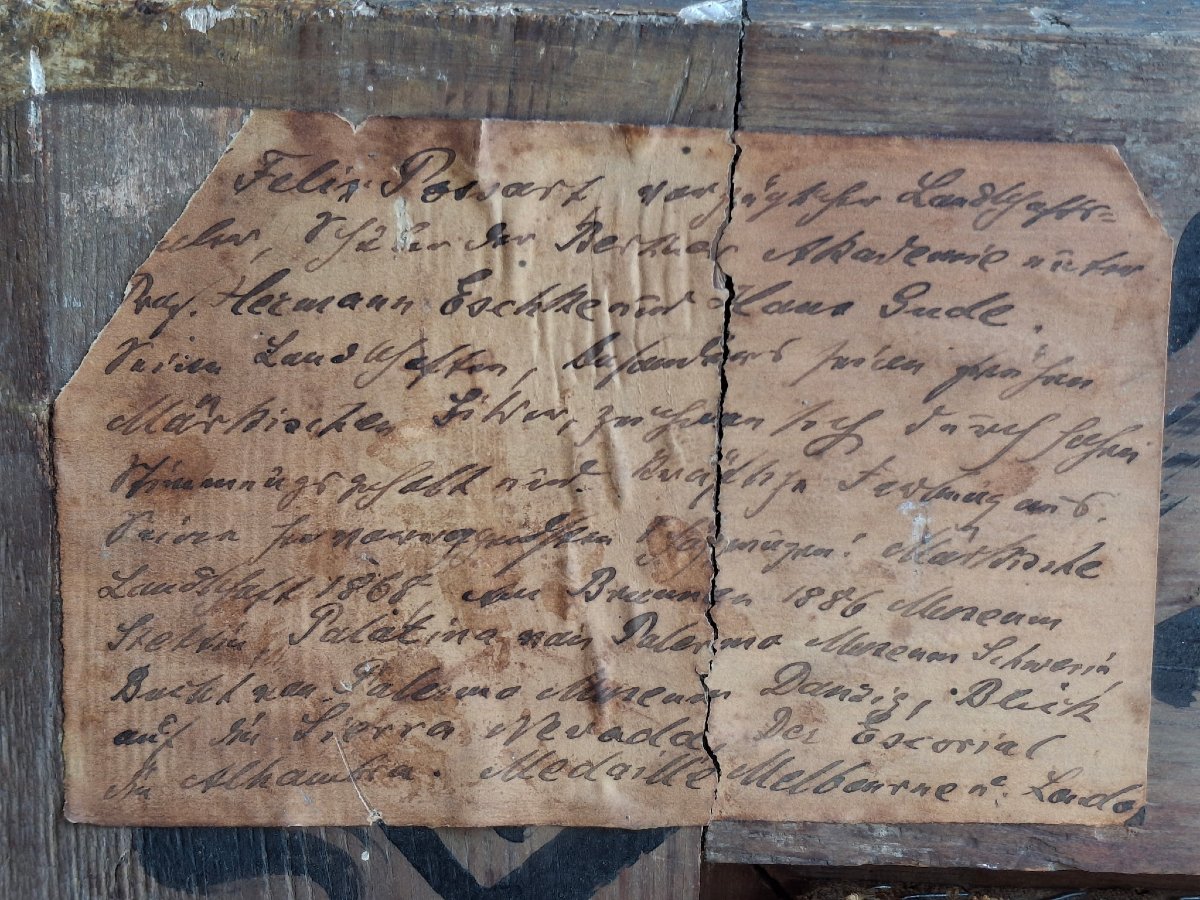 Felix Possart, vorzüglicher Landschafts=
maler, Schüler der Berliner Akademie unter
Prof. Hermann Eschke und Hans Gude.
Seine Landschaften, besonders seine frühen
Märkischen Bilder, zeichnen sich durch hohen
Stimmungsgehalt und kräftige Färbung aus.
Seine hervorragendsten Schöpfungen: Märkische
Landschaft 1868 Am Brunnen 1886 Museum
Stettin, Palatina von Palermo Museum Schwerin,
Bucht von Palermo Museum Danzig, Blick
auf die Sierra Nevada, Der Escorial
die Alhambra. Medaille Melbourne u. London